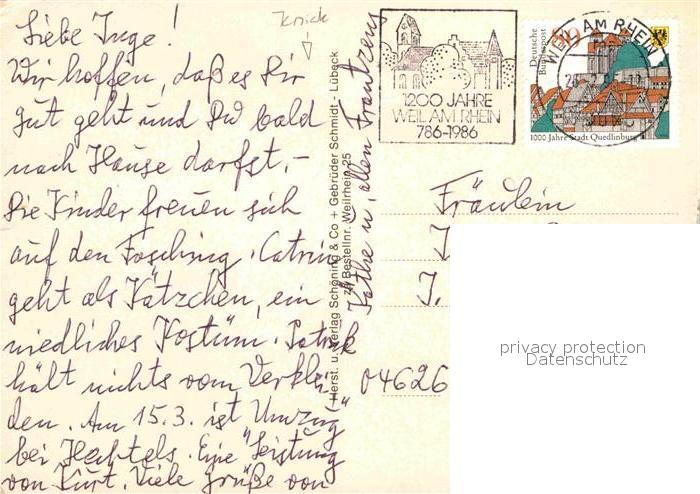 Knick
Liebe Inge!
Wir hoffen, daß es Dir
gut geht und Du bald
nach Hause darfst, -
Die Kinder freuen sich
auf den Fasching. Catrin
geht als Kätzchen, ein
niedliches Kostüm. Patrick
hält nichts vom Verklei-
den. Am 15.3. ist Umzug
bei Hechtels. Eine "Leistung"
von Kurt. Viele Grüße von
Käthe u. allen Frantzens
Herst. u. Verlag Schöning & Co + Gebrüder Schmidt - Lübeck
Bestellnr. Weilrhein 25
1200 JAHRE
WEIL AM RHEIN
786-1986
Deutsche
Bundespost
WEIL AM RHEIN 1
1000 Jahre Stadt Quedlinburg
Fräulein
I.
04626
privacy protection
Datenschutz